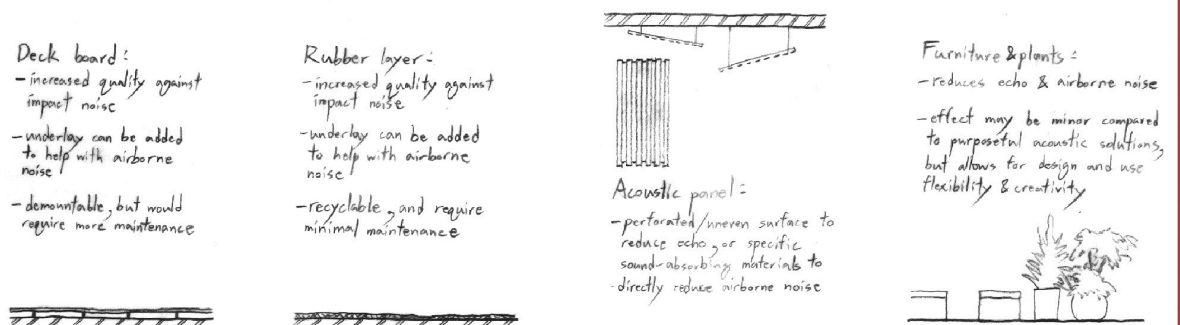 Deck board:
- increased quality against
impact noise
- underlay can be added
to help with airborne
noise
- demountable, but would
require more maintenance
Rubber layer:
- increased quality against
impact noise
- underlay can be added
to help with airborne
noise
- recyclable, and require
minimal maintenance
Acoustic panel:
- perforated/uneven surface to
reduce echo, or specific
sound-absorbing materials to
- directly reduce airborne noise
Furniture & plants:
- reduces echo & airborne noise
- effect may be minor compared
to purposeful acoustic solutions,
but allows for design and use
flexibility & creativity